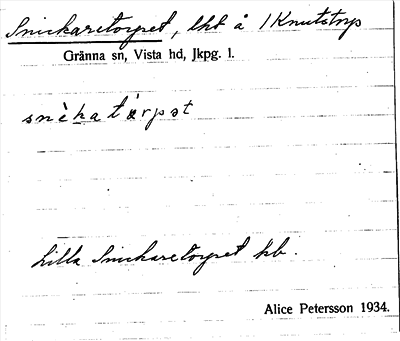 Snickaretorpet, lht å 1 Knutstorp
Gränna sn, Vista hd, Jkpg. l.
snè̀katårpət
Lilla Snickaretorpet kb.
Alice Petersson 1934.